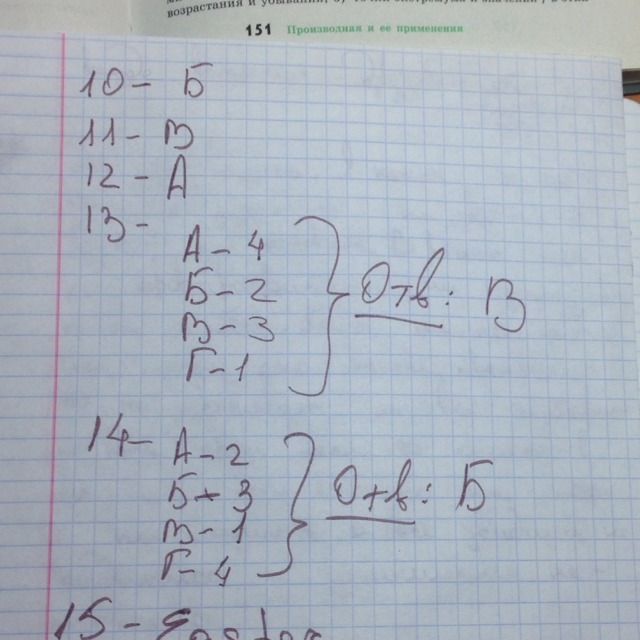 возрастания и убывания;
151 Производная и ее применения
10 - Б
11 - В
12 - А
13 -
А - 4
Б - 2
В - 3
Г - 1
Отв: В
14 -
А - 2
Б - 3
В - 1
Г - 4
Отв: Б
15 -